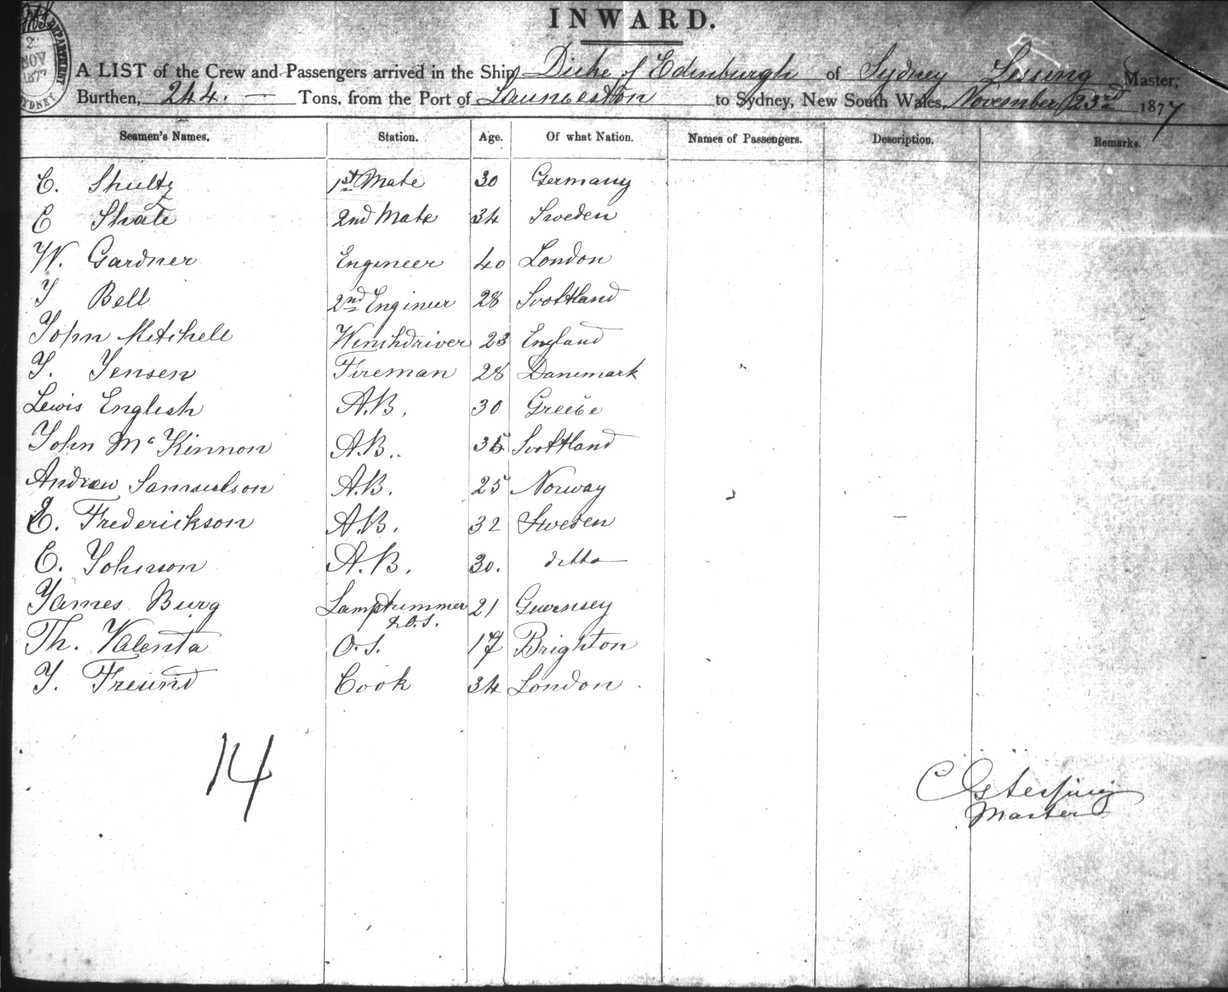 INWARD.
A LIST of the Crew and Passengers arrived in the Ship Duke of Edinburgh of Sydney Master,
Burthen, 244. — Tons, from the Port of Launceston to Sydney, New South Wales, November 23rd 1877
Seamen's Names. Station. Age. Of what Nation. Names of Passengers. Description. Remarks.
C. Shultz 1st Mate 30 Germany
E 2nd Mate 34 Sweden
W. Gardner Engineer 40 London
J Bell 2nd Enginier 28 Scottland
John Mitchell Winchdriver 23 England
J. Jensen Fireman 28 Danemark
Lewis English A.B. 30 Greece
John McKinnon A.B. 35 Scottland
Andrew Samuelson A.B. 25 Norway
Frederickson A.B. 32 Sweden
C. Johnson A.B. 30. ditto
James Burg Lamptrimmer & O.S. 21 Guernsey
Th. Valenta O.S. 17 Brighton
J. Freund Cook 34 London
14
C
Master